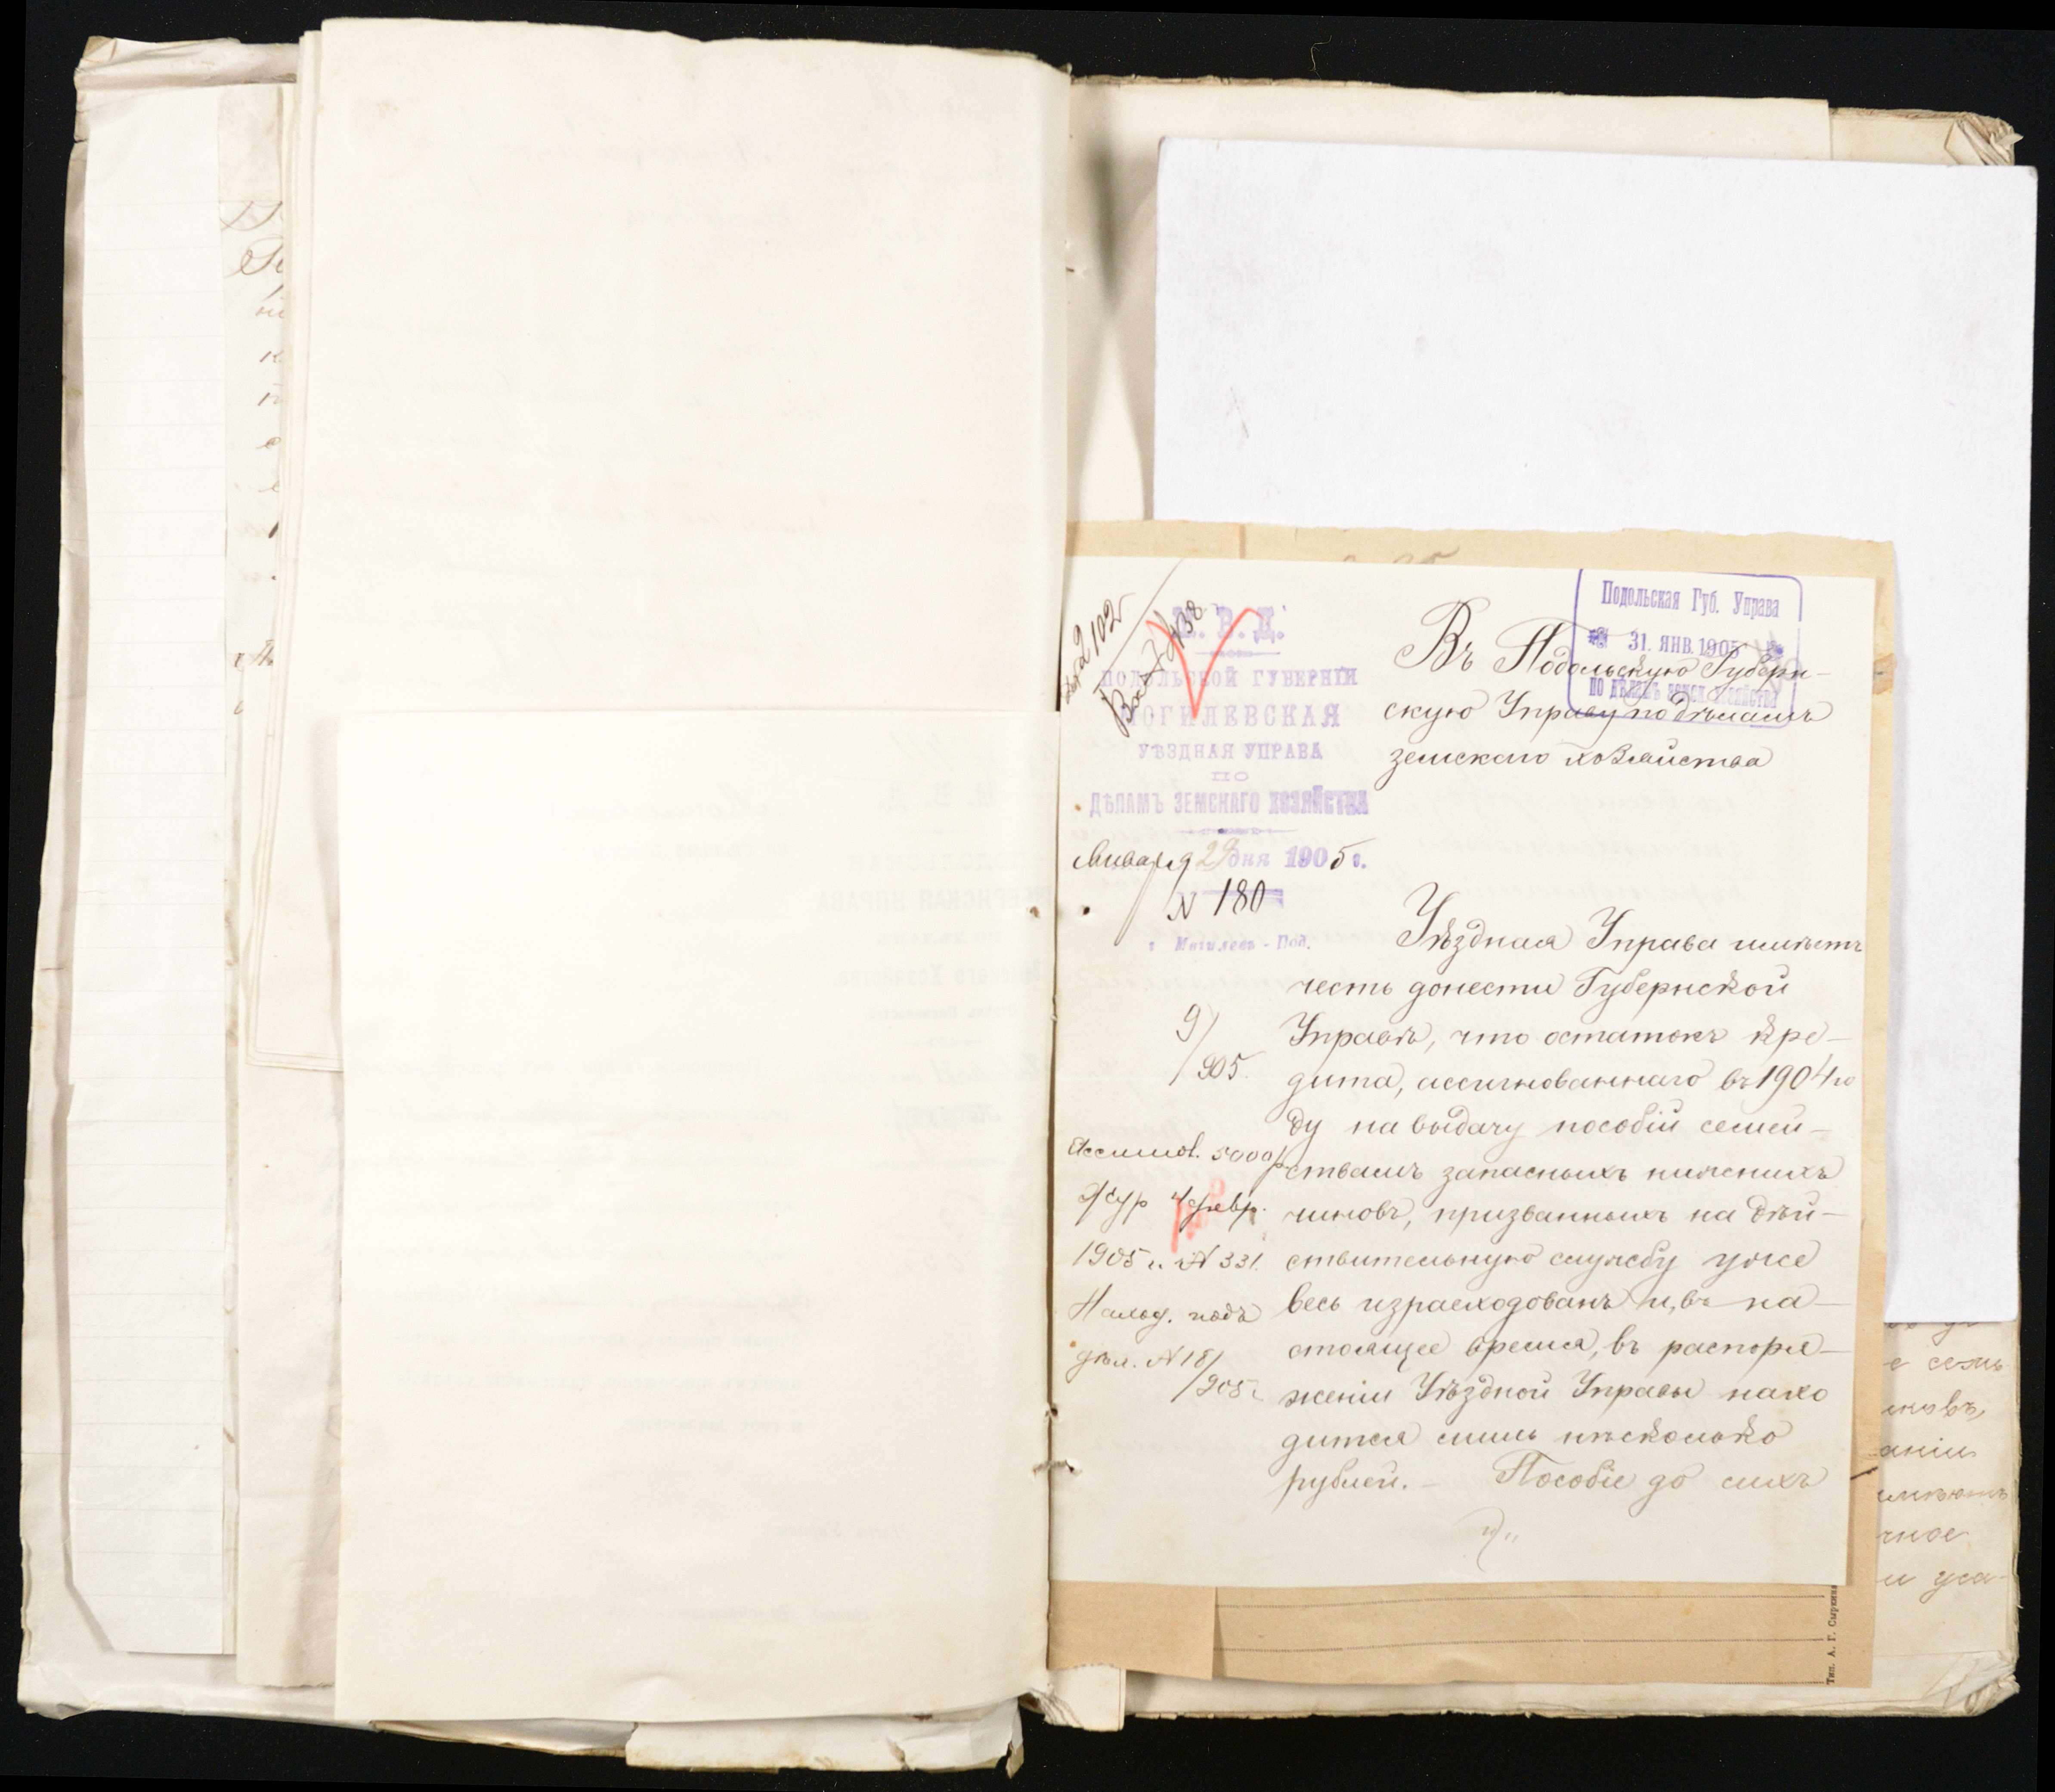 102
М. В. Д.
ПОДОЛЬСКОЙ ГУБЕРНІИ
МОГИЛЕВСКАЯ
УѢЗДНАЯ УПРАВА
ПО
ДѢЛАМЪ ЗЕМСКАГО ХОЗЯЙСТВА
Января 29 дня 1905 г.
№ 180
г. Могилевъ-Под.
Подольская Губ. Управа
31. ЯНВ. 1905
по дѣламъ земск. хозяйства
Въ Подольскую Губерн-
скую Управу по дѣламъ
земскаго хозяйства
Уѣздная Управа имѣетъ
честь донести Губернской
Управѣ, что остатокъ кре-
дита, ассигнованнаго въ 1904 го
ду на выдачу пособій семей-
ствамъ запасныхъ нижнихъ
чиновъ, призванныхъ на дѣй-
ствительную службу уже
весь израсходованъ и, въ на-
стоящее время, въ распоря-
женіи Уѣздной Управы нахо
дится лишь нѣсколько
рублей. - Пособіе до сихъ
9/
905.
Ассигнов. 5000 р.
Жур 4 февр.
1905 г. № 331.
дѣл. № 18/
905 г.
Тип. А. Г. Сыркина